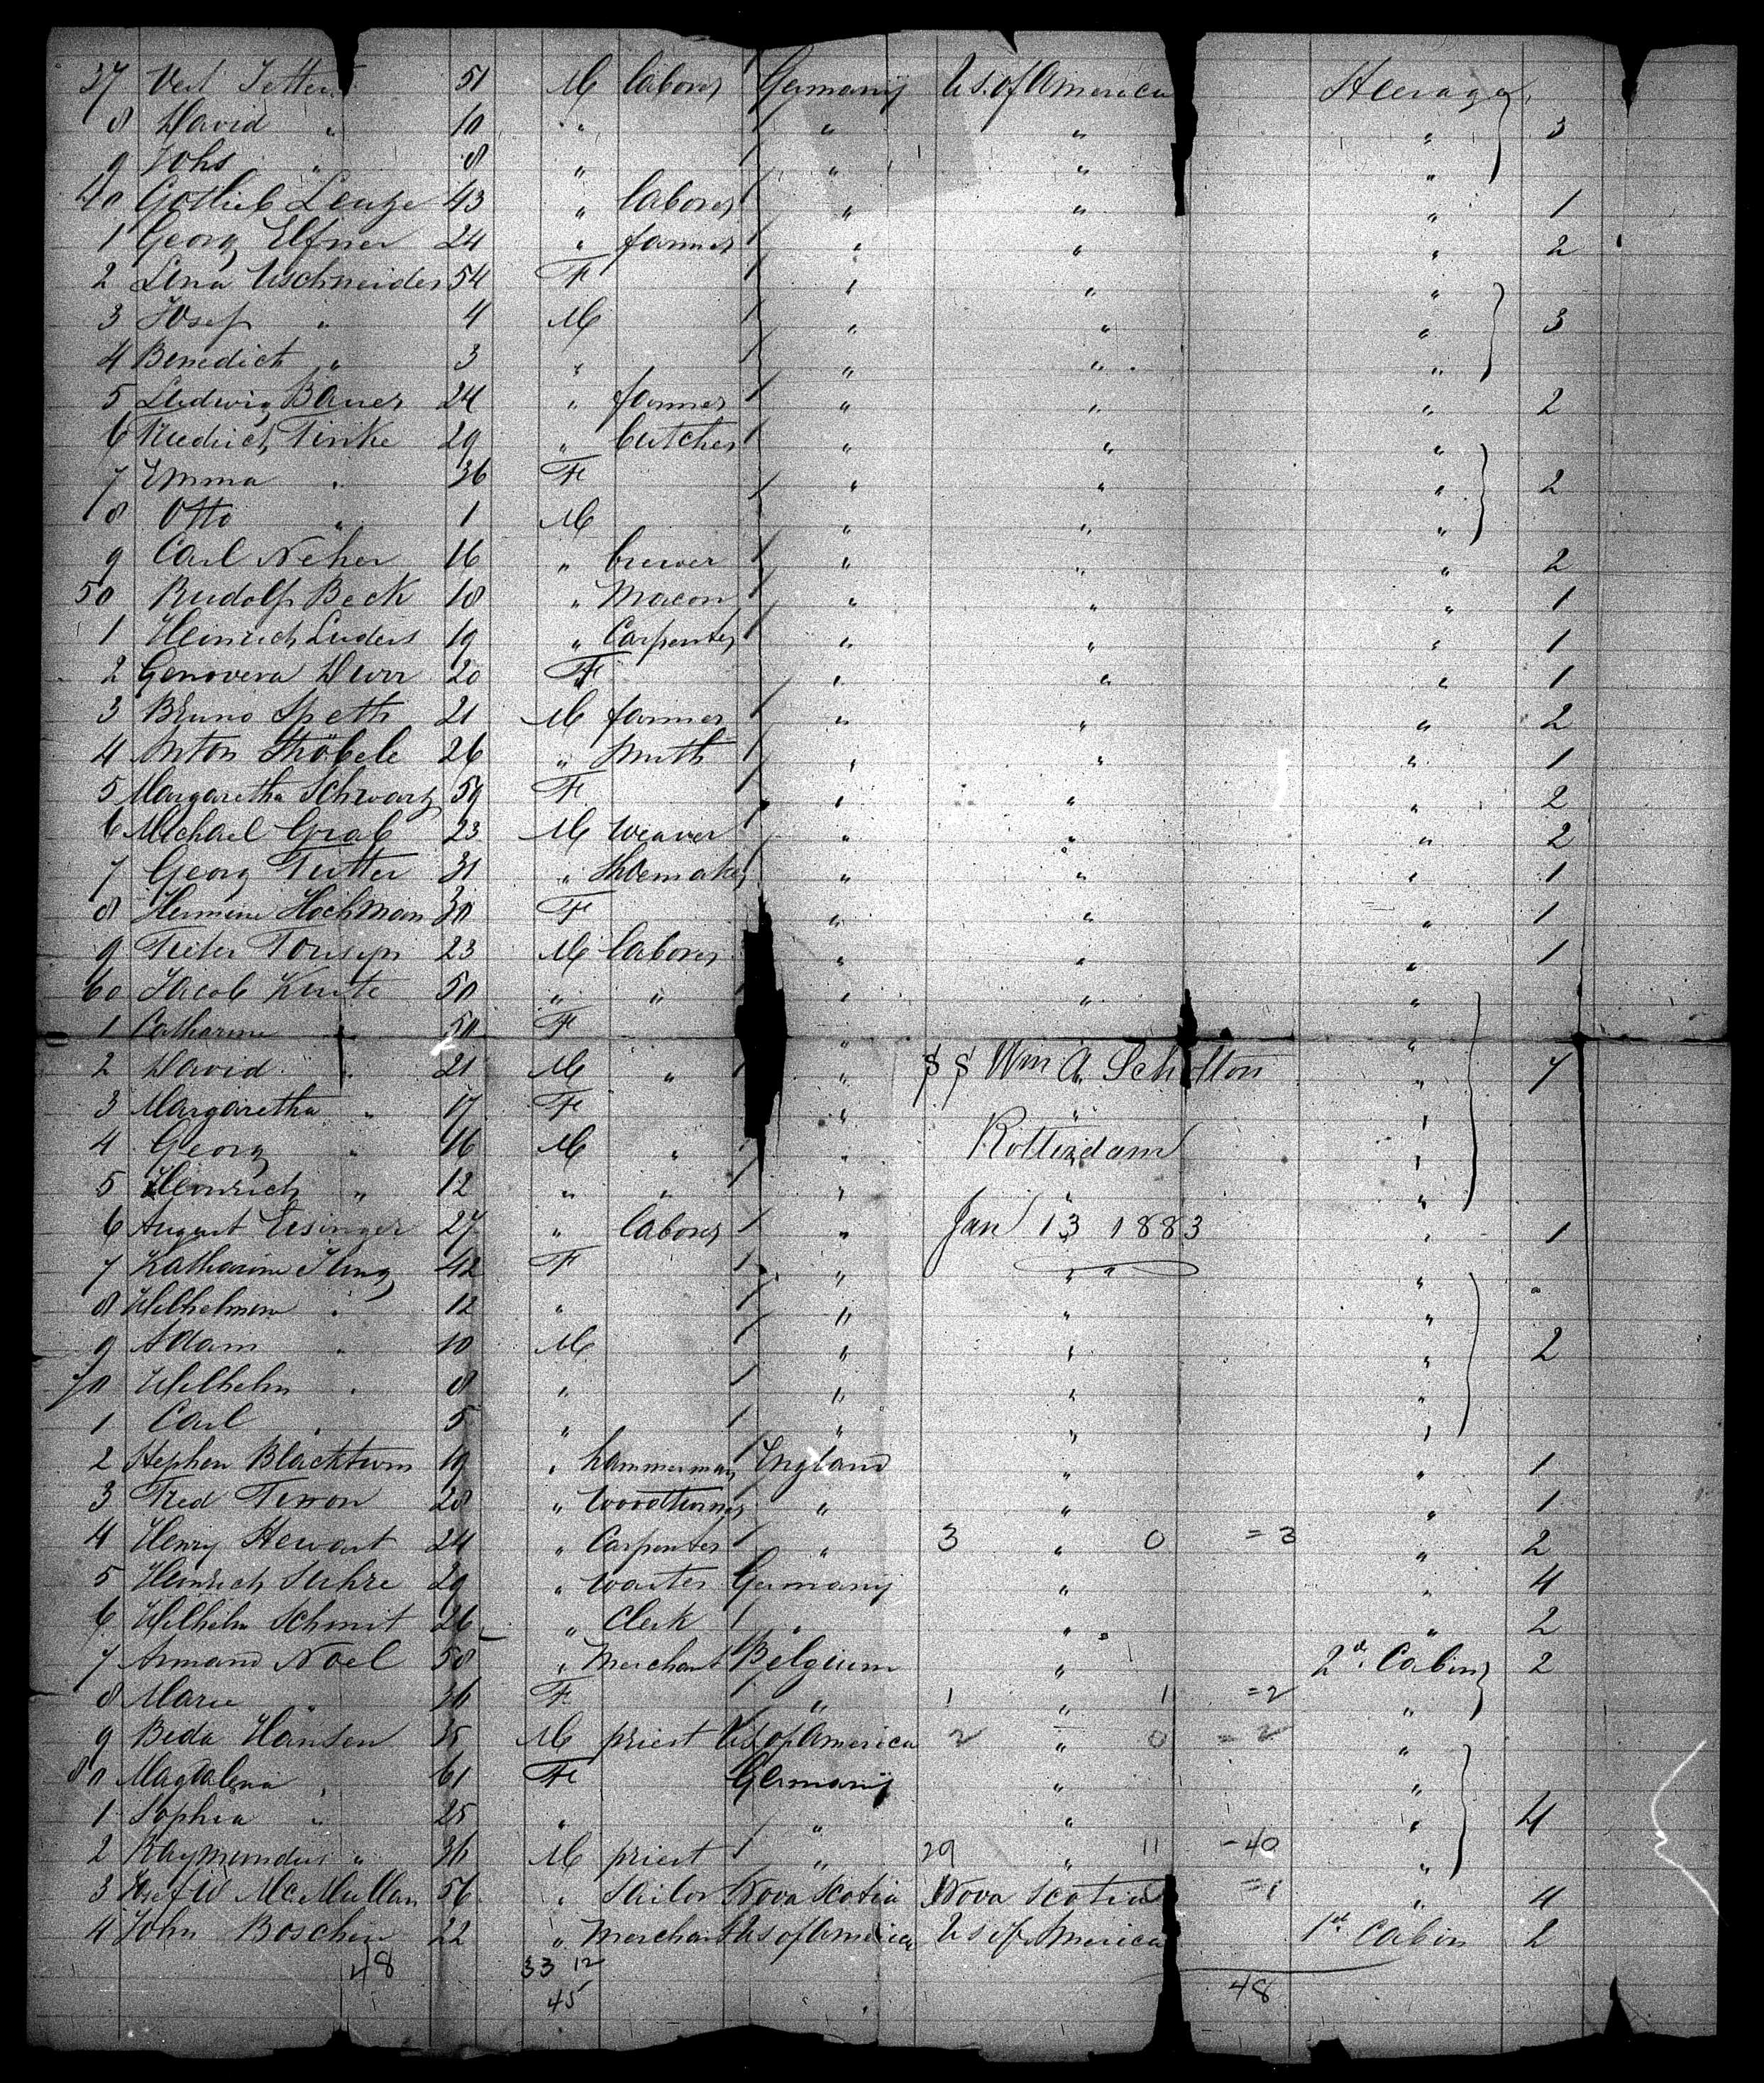 37 Veit Vetter 51 M labores Germany U.S. of America Steerage
8 David " 10 " " " " 3
9 Johs " 8 " " " "
40 Gotlieb Lenze 43 " labores " " " 1
1 Georg Elfner 24 " farmer " " " 2
2 Lena Uschneider 54 F " " "
3 Josef " 4 M " " " 3
4 Benedich " 3 " " " "
5 Ludwig Bauer 24 " farmer " " " 2
6 Friedrich Finke 29 " butcher " " "
7 Emma " 36 F " " " 2
8 Otto " 1 M " " "
9 Carl Neher 16 " brewer " " " 2
50 Rudolf Beck 18 " Macon " " " 1
1 Heinrich Luders 19 " Carpenter " " " 1
2 Genovera Durr 20 F " " " 1
3 Bruno Speth 21 M farmer " " " 2
4 Anton Ströbele 26 " Smith " " " 1
5 Margaretha Schwartz 59 F " " " 2
6 Michael Grab 23 M Weaver " " " 2
7 Georg Futter 31 " Shoemaker " " " 1
8 Hermine Hochman 30 F " " " 1
9 23 M labores " " " 1
60 Jacob Kunte 50 " " " " "
1 Catharine 50 F " "
2 David " 21 M " " SS Wm A Scholten " 7
3 Margaretha " 17 F " " "
4 Georg " 16 M " " Rotterdam "
5 Heinrich " 12 " " " " "
6 August Eisinger 27 " labores " Jan 13 1883 " 1
7 Katharine Jung 42 F " " "
8 Wilhelmine " 12 " " " "
9 Adam " 10 M " " " 2
70 Wilhelm " 8 " " " "
1 Carl " 5 " " " "
2 Stephen Blackburn 19 " hammerman England " " 1
3 Fred Ferron 28 " Woodturner " " " 1
4 Henry Stewart 24 " Carpenter " 3 " 0 =3 " 2
5 Heinrich Suhre 29 " Waiter Germany " " 4
6 Wilhelm Schmit 26 " Clerk " " " 2
7 Armand Noel 58 " Merchant Belgium " 2d Cabin 2
8 Marie " 36 F " 1 " 1 =2 "
9 Beda Hansen 35 M priest U.S. of America 2 " 0 =2 "
80 Magdalena " 61 F Germany " "
1 Sophia " 25 " " " " 4
2 Raymundus " 36 M priest " 29 " 11 -40 "
3 Josef W McMullan 56 " Sailor Nova Scotia Nova Scotia =1 " 4
4 John Boschen 22 " Merchant U.S. of America U.S. of America 1st Cabin 2
48 33 12 48
45